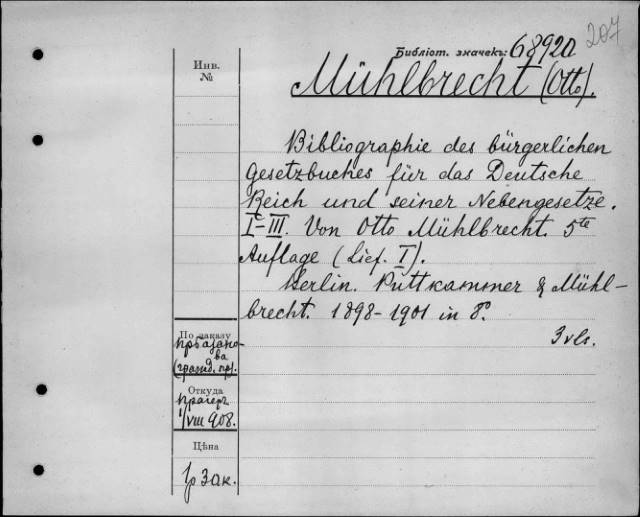 207
Библіот. значекъ: 6892a
Инв.
№
Mühlbrecht (Otto).
Bibliographie des bürgerlichen
Gesetzbuches für das Deutsche
Reich und seiner Nebengesetze.
I-III. Von Otto Mühlbrecht. 5te
Auflage (Lief. I).
Berlin. Puttkammer & Mühl-
brecht. 1898-1901 in 8°
3 vls.
По заказу
(гражд. пр).
Откуда
Прагеръ
1/VIII 908.
Цѣна
Зак.